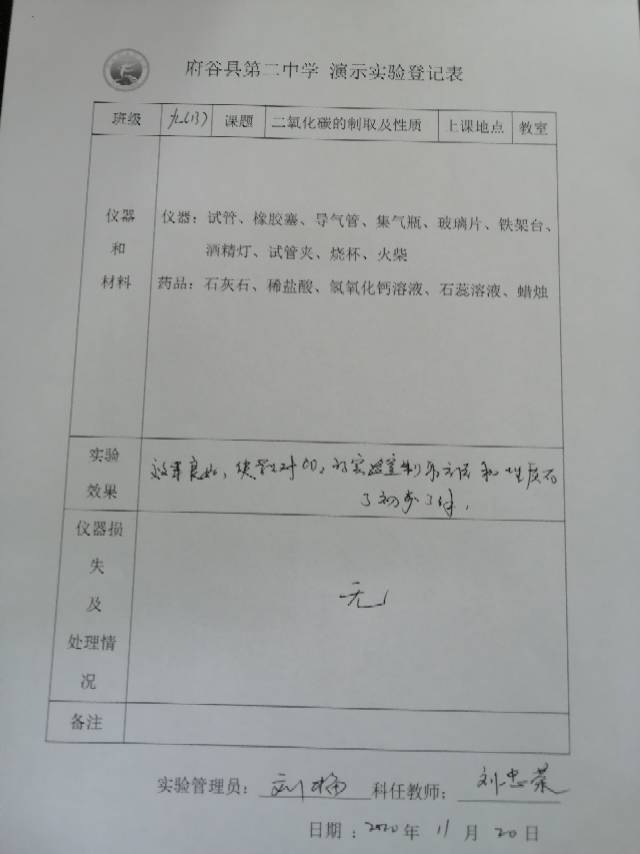 府谷县第二中学 演示实验登记表
班级 九(13) 课题 二氧化碳的制取及性质 上课地点 教室
仪器
和
材料
仪器：试管、橡胶塞、导气管、集气瓶、玻璃片、铁架台、
酒精灯、试管夹、烧杯、火柴
药品：石灰石、稀盐酸、氢氧化钙溶液、石蕊溶液、蜡烛
实验
效果
效果良好，使学生对CO₂的实验室制取方法和性质有
了初步了解，
仪器损
失
及
处理情
况
无
备注
实验管理员： 刘梅 科任教师： 刘忠荣
日期：2020年 11月 20日